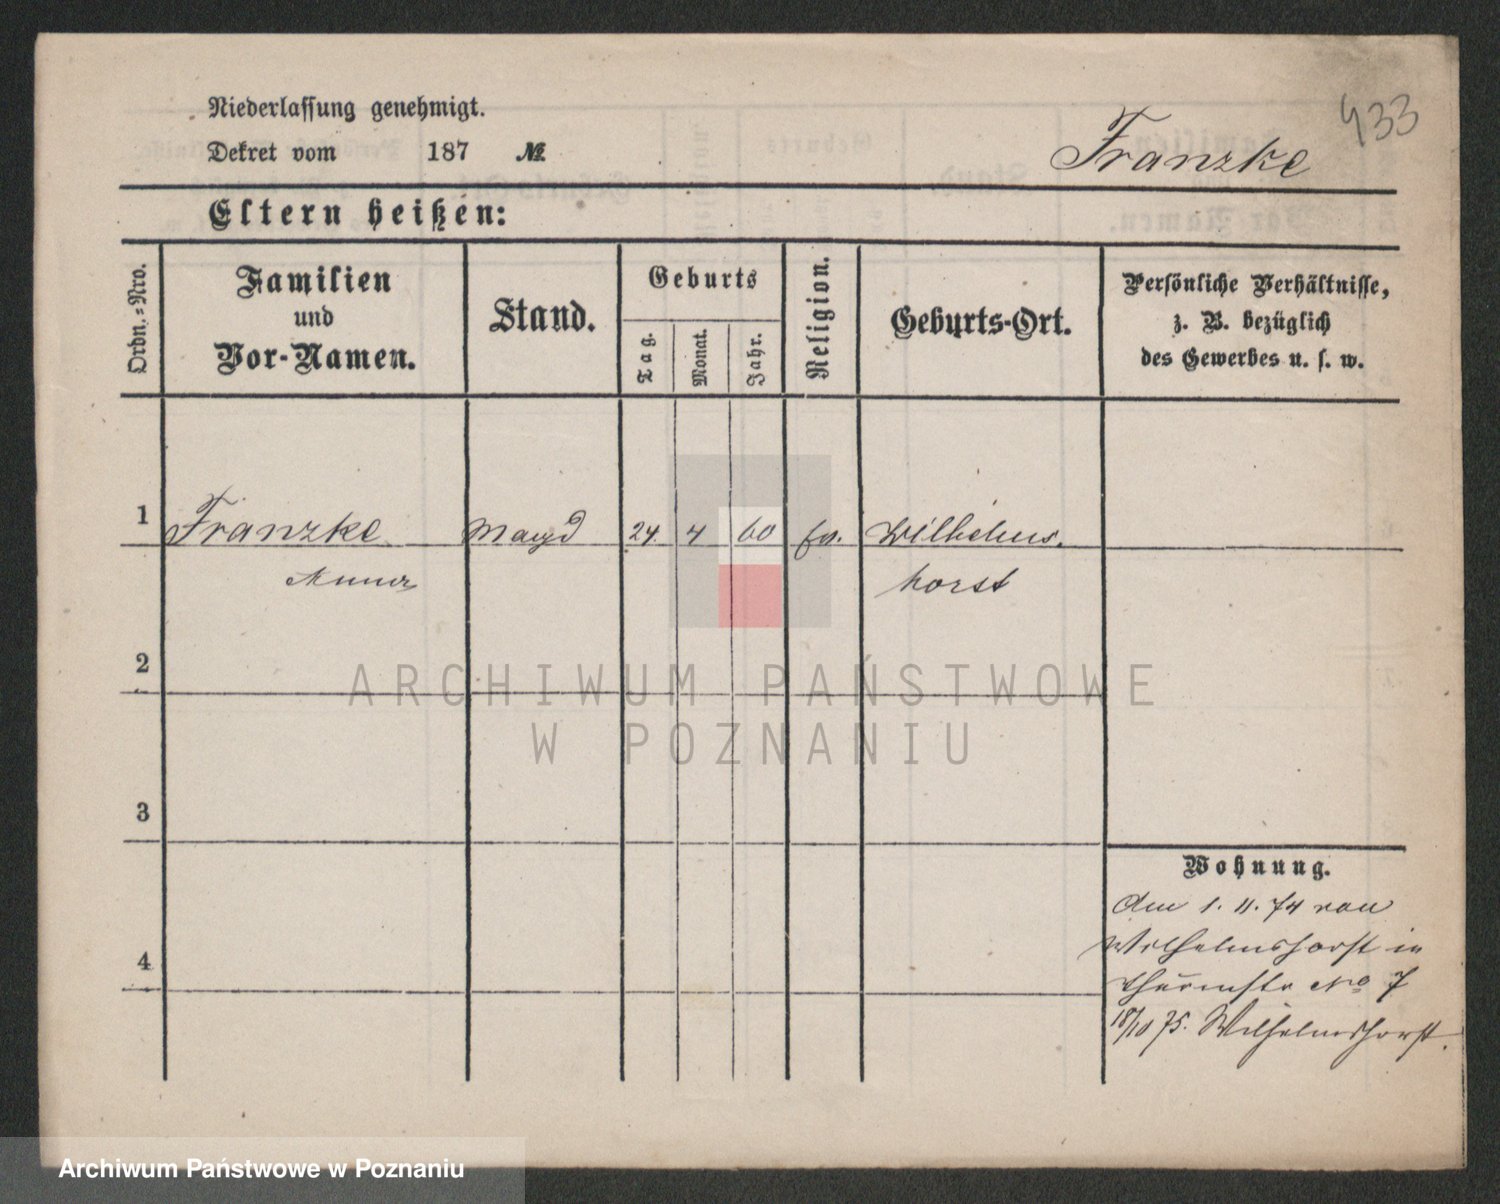 433
Niederlassung genehmigt.
Dekret vom 187 №
Franzke
Eltern heißen:
Ordn.-Nro.
Familien
und
Vor-Namen.
Stand.
Geburts
Tag.
Monat.
Jahr.
Religion.
Geburts-Ort.
Persönliche Verhältnisse,
z. B. bezüglich
des Gewerbes u. s. w.
1 Franzke Magd 24 4 60 Wilhelms.
Anna horst
2
3
4
Wohnung.
Am 1. 11. 74 von
Wilhelmshorst in
No 7
18/10 75. Wilhelmshorst.
ARCHIWUM PAŃSTWOWE
W POZNANIU
Archiwum Państwowe w Poznaniu